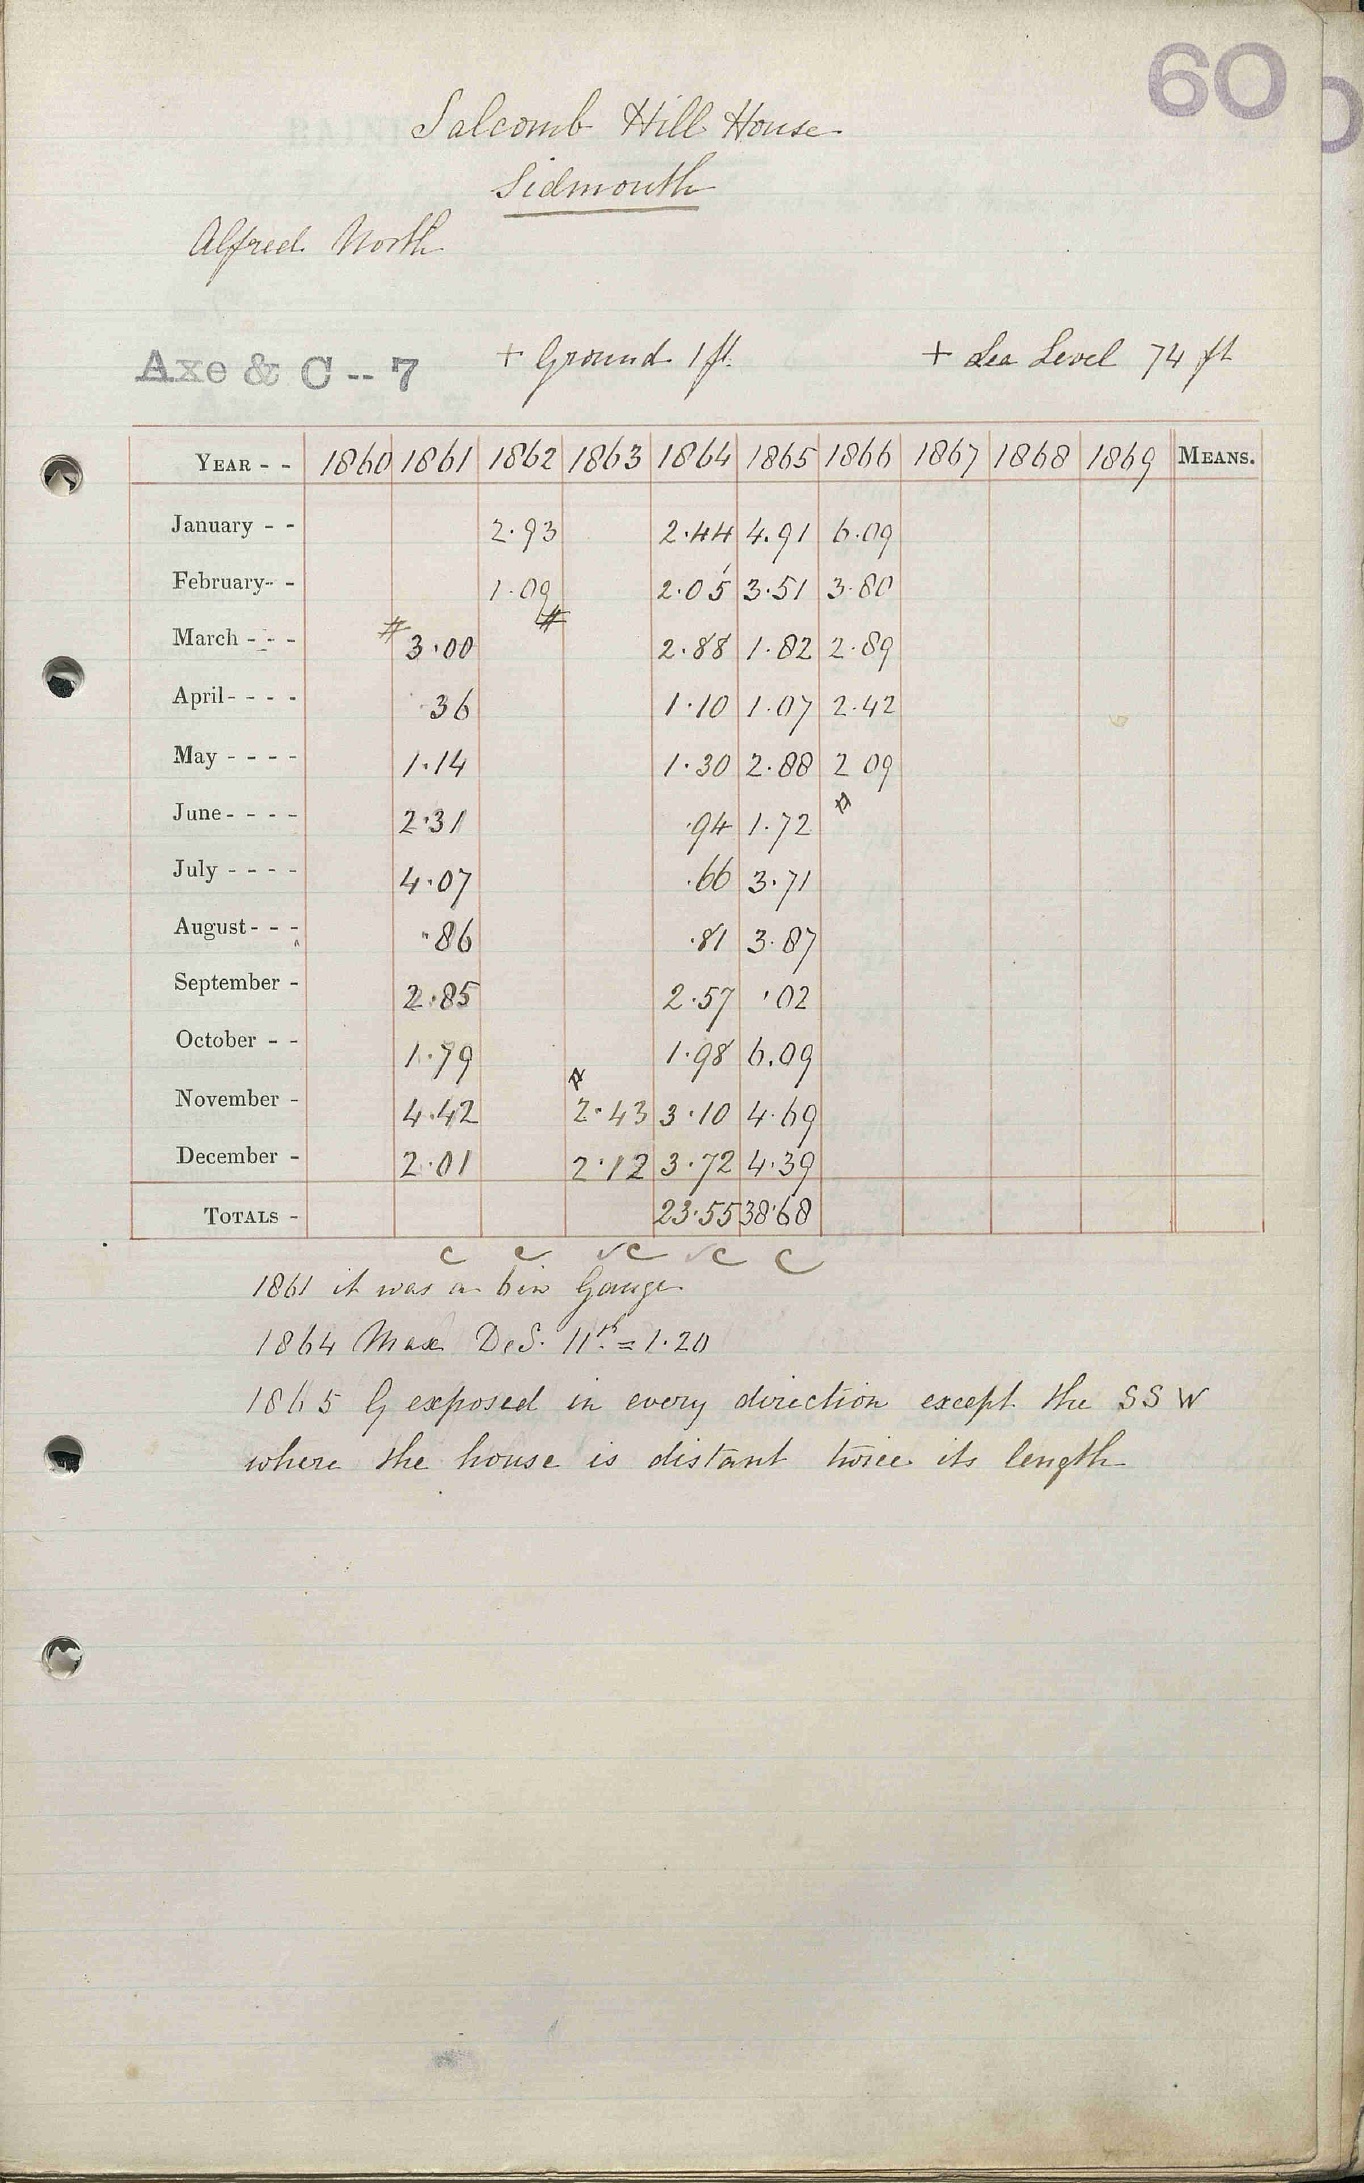 60
Salcomb Hill House
Sidmouth
Alfred North
Axe & C -- 7 + Ground 1 ft. + Sea Level 74 ft
YEAR - - 1860 1861 1862 1863 1864 1865 1866 1867 1868 1869 MEANS.
January - - 2.93 2.44 4.91 6.09
February - - 1.09 2.05 3.51 3.80
March - - - # 3.00 # 2.88 1.82 2.89
April - - - - .36 1.10 1.07 2.42
May - - - - 1.14 1.30 2.88 2 09
June - - - - 2.31 .94 1.72 #
July - - - - 4.07 .66 3.71
August - - - .86 .81 3.87
September - 2.85 2.57 .02
October - - 1.79 1.98 6.09
November - 4.42 # 2.43 3.10 4.69
December - 2.01 2.12 3.72 4.39
TOTALS - 23.55 38.68
c c √c √c c
1861 it was a 6in Gauge
1864 Max 11th = 1.20
1865 G exposed in every direction except the SSW
where the house is distant twice its length